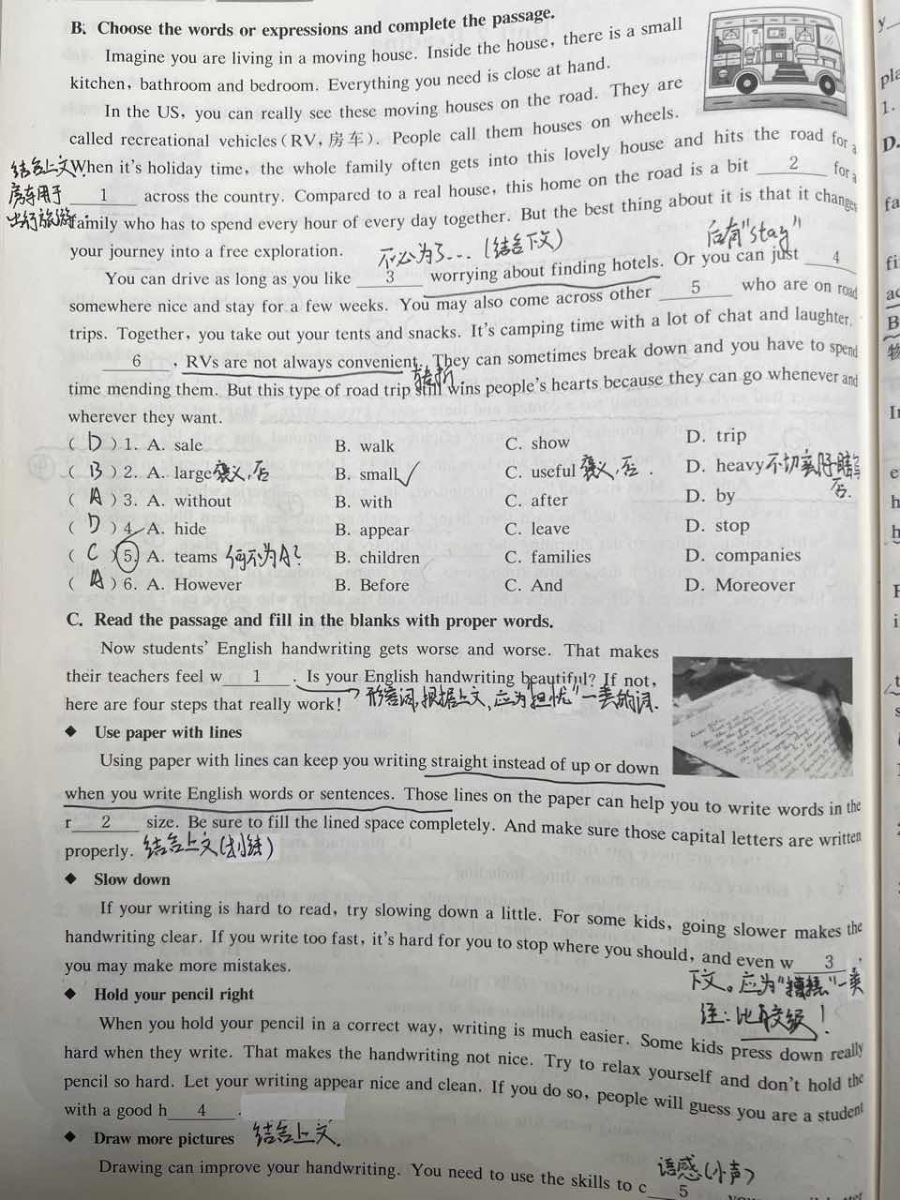 B. Choose the words or expressions and complete the passage.
Imagine you are living in a moving house. Inside the house, there is a small
kitchen, bathroom and bedroom. Everything you need is close at hand.
In the US, you can really see these moving houses on the road. They are
called recreational vehicles (RV, 房车). People call them houses on wheels.
结合上文
When it's holiday time, the whole family often gets into this lovely house and hits the road for a
房车用于
1 across the country. Compared to a real house, this home on the road is a bit 2 for a
出行旅游
family who has to spend every hour of every day together. But the best thing about it is that it changes
your journey into a free exploration.
不必为了... (结合下文)
后有"stay"
You can drive as long as you like 3 worrying about finding hotels. Or you can just 4
somewhere nice and stay for a few weeks. You may also come across other 5 who are on road
trips. Together, you take out your tents and snacks. It's camping time with a lot of chat and laughter.
6 , RVs are not always convenient. They can sometimes break down and you have to spend
转折
time mending them. But this type of road trip still wins people's hearts because they can go whenever and
wherever they want.
( D ) 1. A. sale B. walk C. show D. trip
( B ) 2. A. large 褒义,否 B. small ✓ C. useful 褒义,否. D. heavy 不切实际 否.
( A ) 3. A. without B. with C. after D. by
( D ) 4. A. hide B. appear C. leave D. stop
( C ) 5. A. teams 何不为A? B. children C. families D. companies
( A ) 6. A. However B. Before C. And D. Moreover
C. Read the passage and fill in the blanks with proper words.
Now students' English handwriting gets worse and worse. That makes
their teachers feel w 1 . Is your English handwriting beautiful? If not,
here are four steps that really work!
形容词,根据上文,应为"担忧"一类的词.
◆ Use paper with lines
Using paper with lines can keep you writing straight instead of up or down
when you write English words or sentences. Those lines on the paper can help you to write words in the
r 2 size. Be sure to fill the lined space completely. And make sure those capital letters are written
properly. 结合上文(划线)
◆ Slow down
If your writing is hard to read, try slowing down a little. For some kids, going slower makes the
handwriting clear. If you write too fast, it's hard for you to stop where you should, and even w 3 ,
you may make more mistakes.
下文。应为"糟糕"一类
注:比较级!
◆ Hold your pencil right
When you hold your pencil in a correct way, writing is much easier. Some kids press down really
hard when they write. That makes the handwriting not nice. Try to relax yourself and don't hold the
pencil so hard. Let your writing appear nice and clean. If you do so, people will guess you are a student
with a good h 4 .
◆ Draw more pictures 结合上文.
语感(小声)
Drawing can improve your handwriting. You need to use the skills to c 5